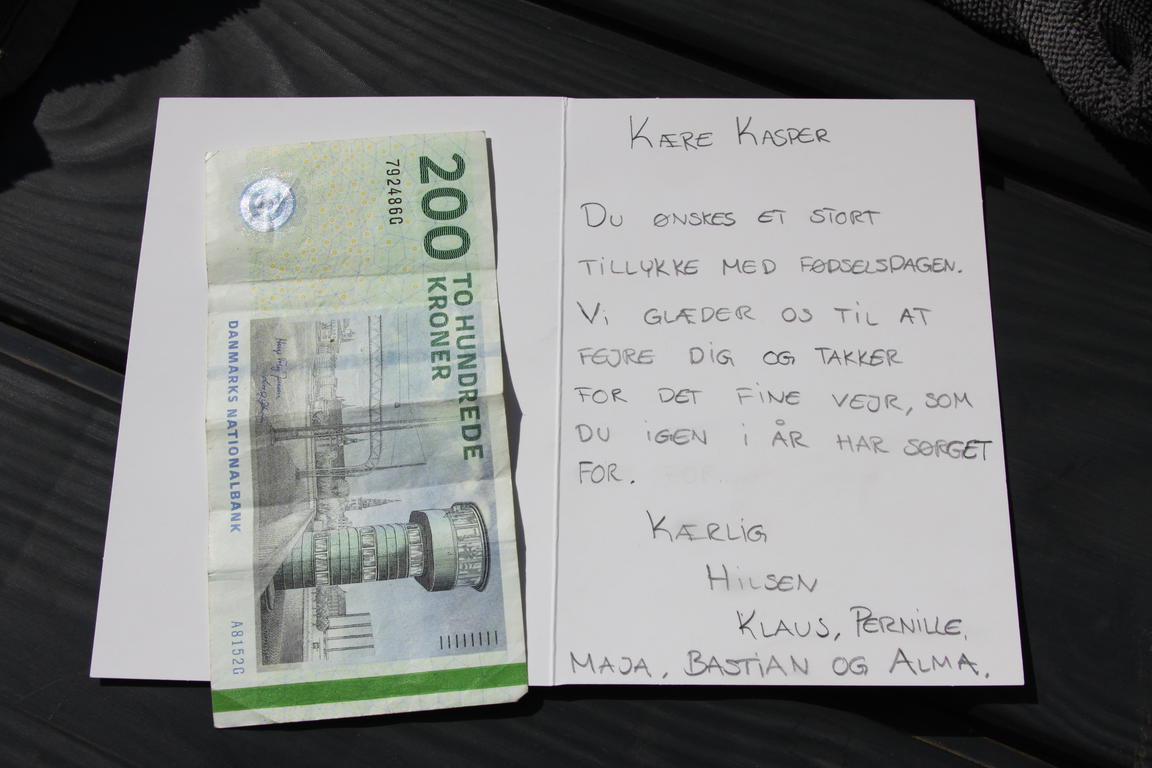 200
TO HUNDREDE
KRONER
792486G
DANMARKS NATIONALBANK
A8152G
KÆRE KASPER
DU ØNSKES ET STORT
TILLYKKE MED FØDSELSDAGEN.
VI GLÆDER OS TIL AT
FEJRE DIG OG TAKKER
FOR DET FINE VEJR, SOM
DU IGEN I ÅR HAR SØRGET
FOR.
KÆRLIG
HILSEN
KLAUS, PERNILLE,
MAJA, BASTIAN OG ALMA.